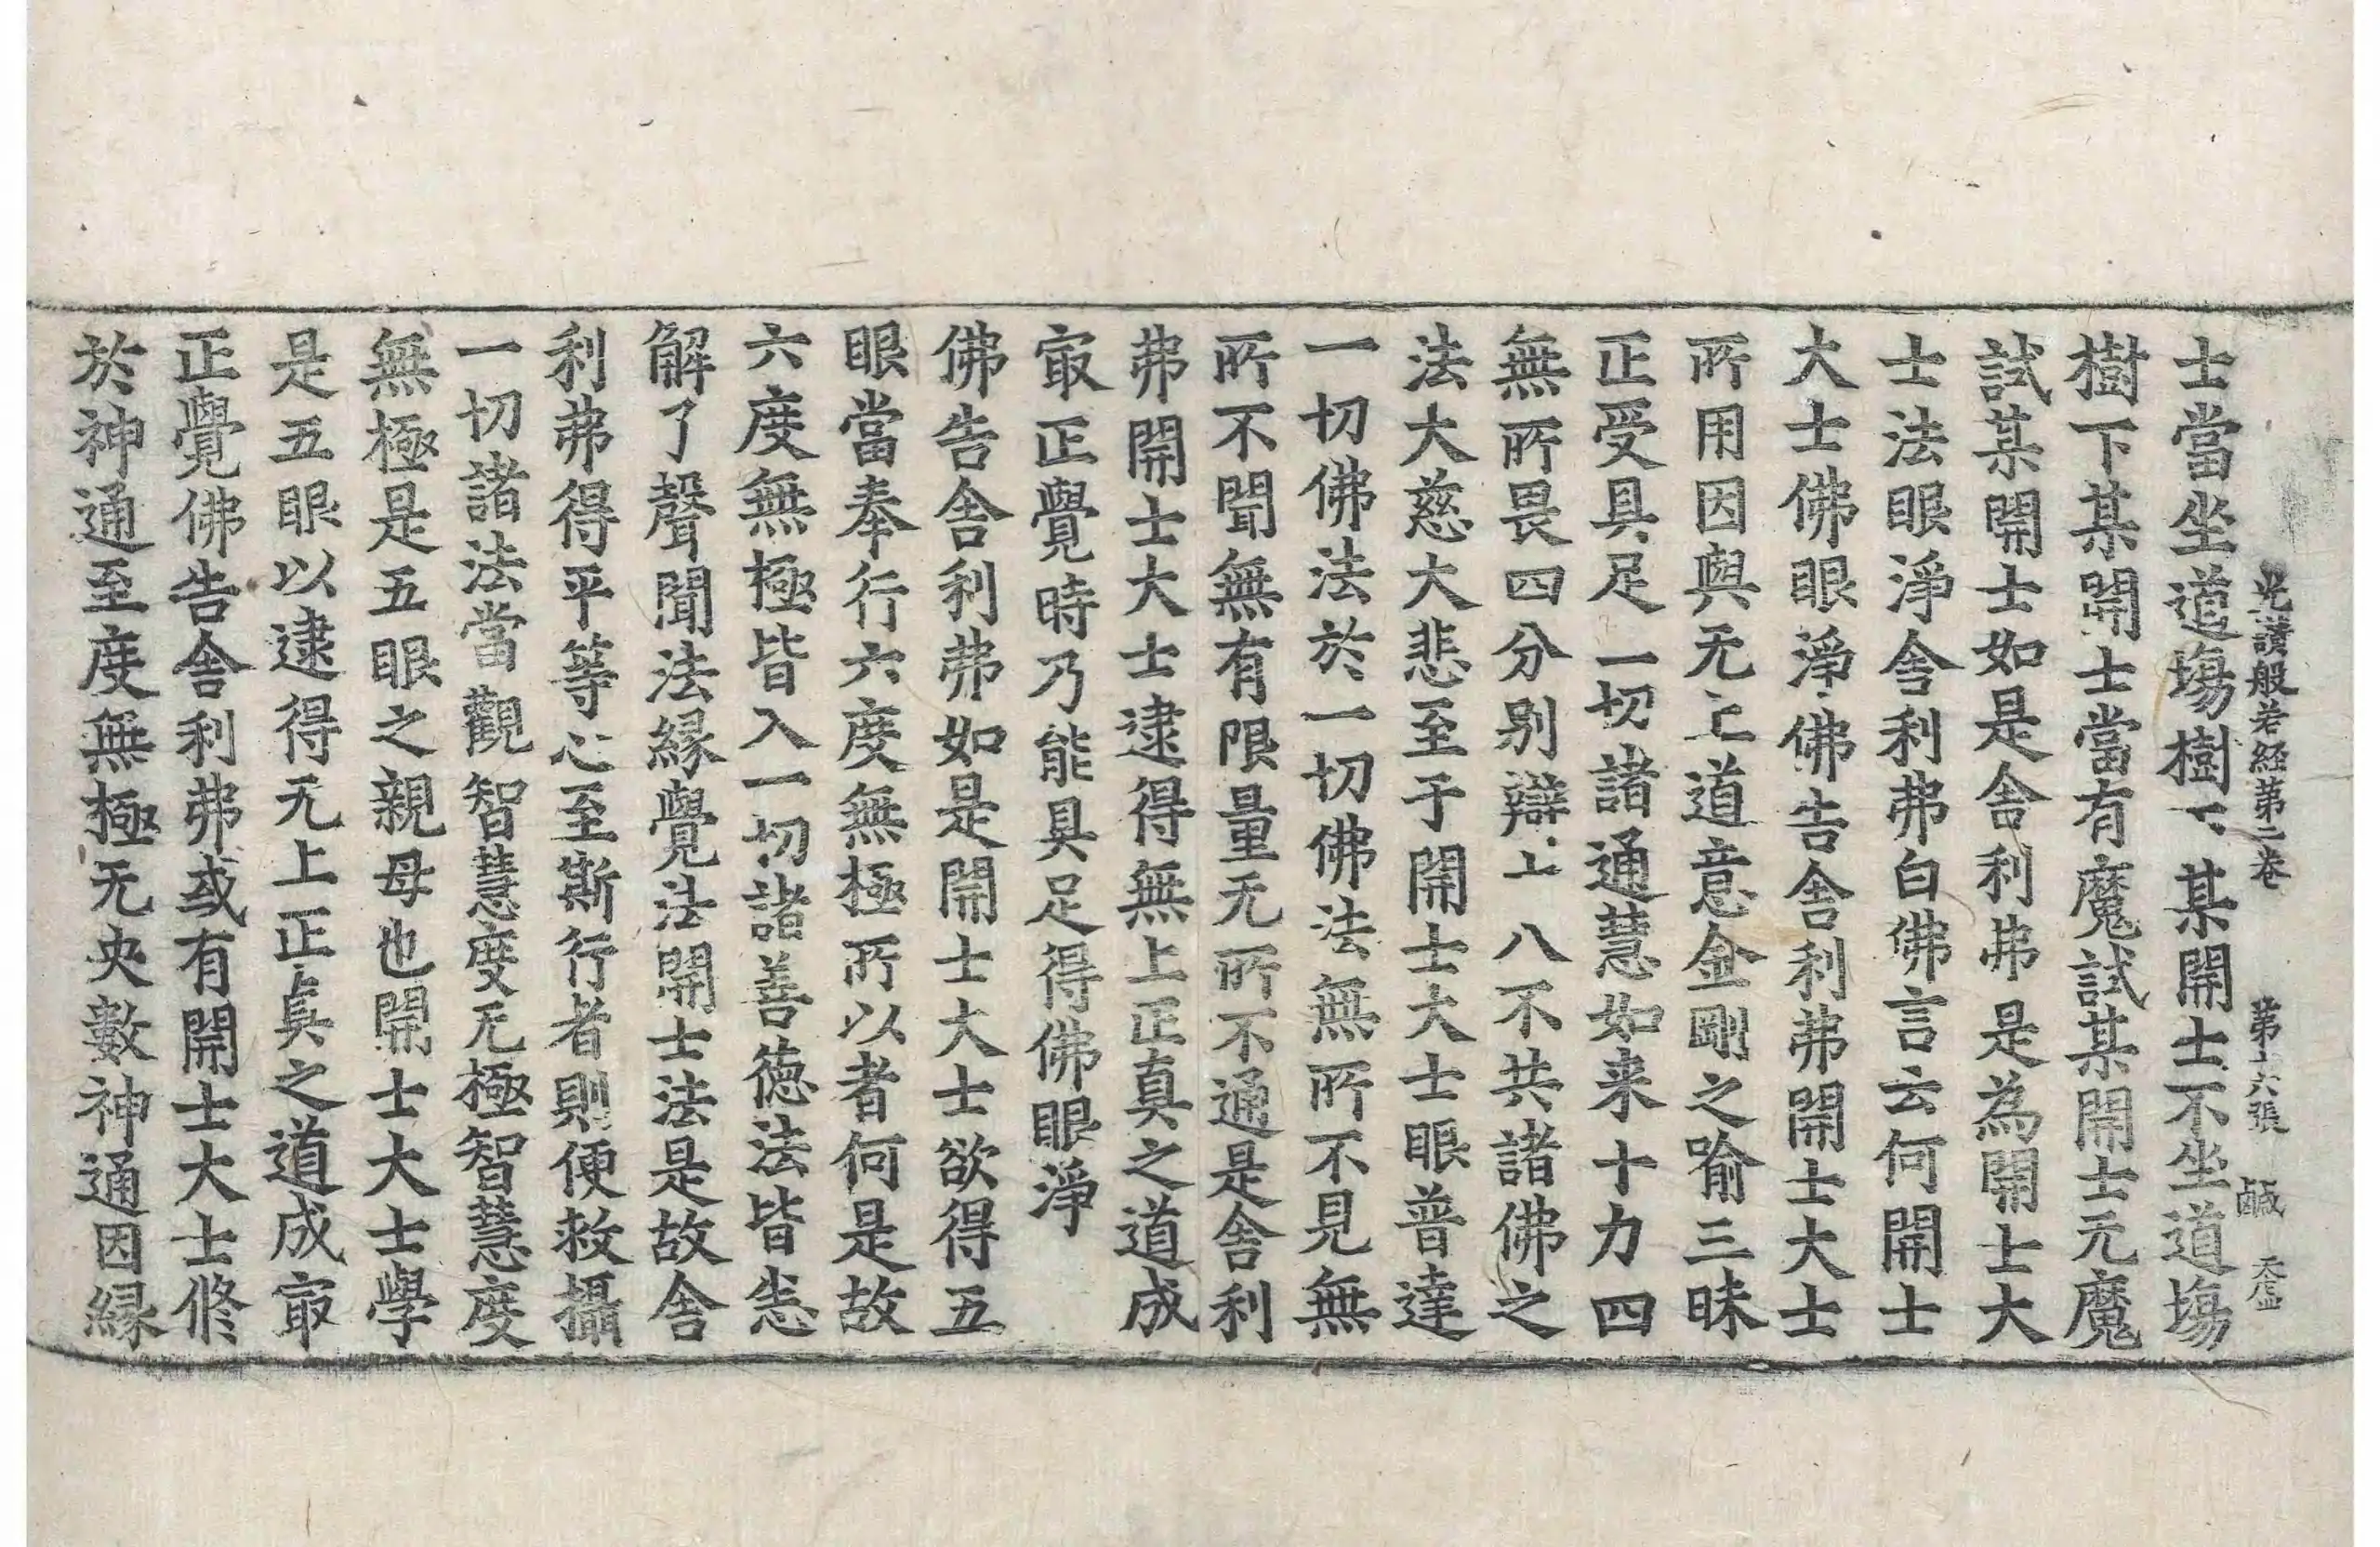 光讃般若経第二巻 第十六張 鹹 天
士當坐道塲樹下某開士不坐道塲
樹下某開士當有魔試某開士无魔
試某開士如是舎利弗是為開士大
士法眼淨舎利弗白佛言云何開士
大士佛眼淨佛告舎利弗開士大士
所用因與无上道意金剛之喻三昧
正受具足一切諸通慧如来十力四
無所畏四分別辯十八不共諸佛之
法大慈大悲至于開士大士眼普達
一切佛法於一切佛法無所不見無
所不聞無有限量无所不通是舎利
弗開士大士逮得無上正真之道成
㝡正覺時乃能具足得佛眼淨
佛告舎利弗如是開士大士欲得五
眼當奉行六度無極所以者何是故
六度無極皆入一切諸善徳法皆悉
解了聲聞法縁覺法開士法是故舎
利弗得平等心至斯行者則便救攝
一切諸法當觀智慧度无極智慧度
無極是五眼之親母也開士大士學
是五眼以逮得无上正真之道成㝡
正覺佛告舎利弗或有開士大士修
於神通至度無極无央數神通因縁